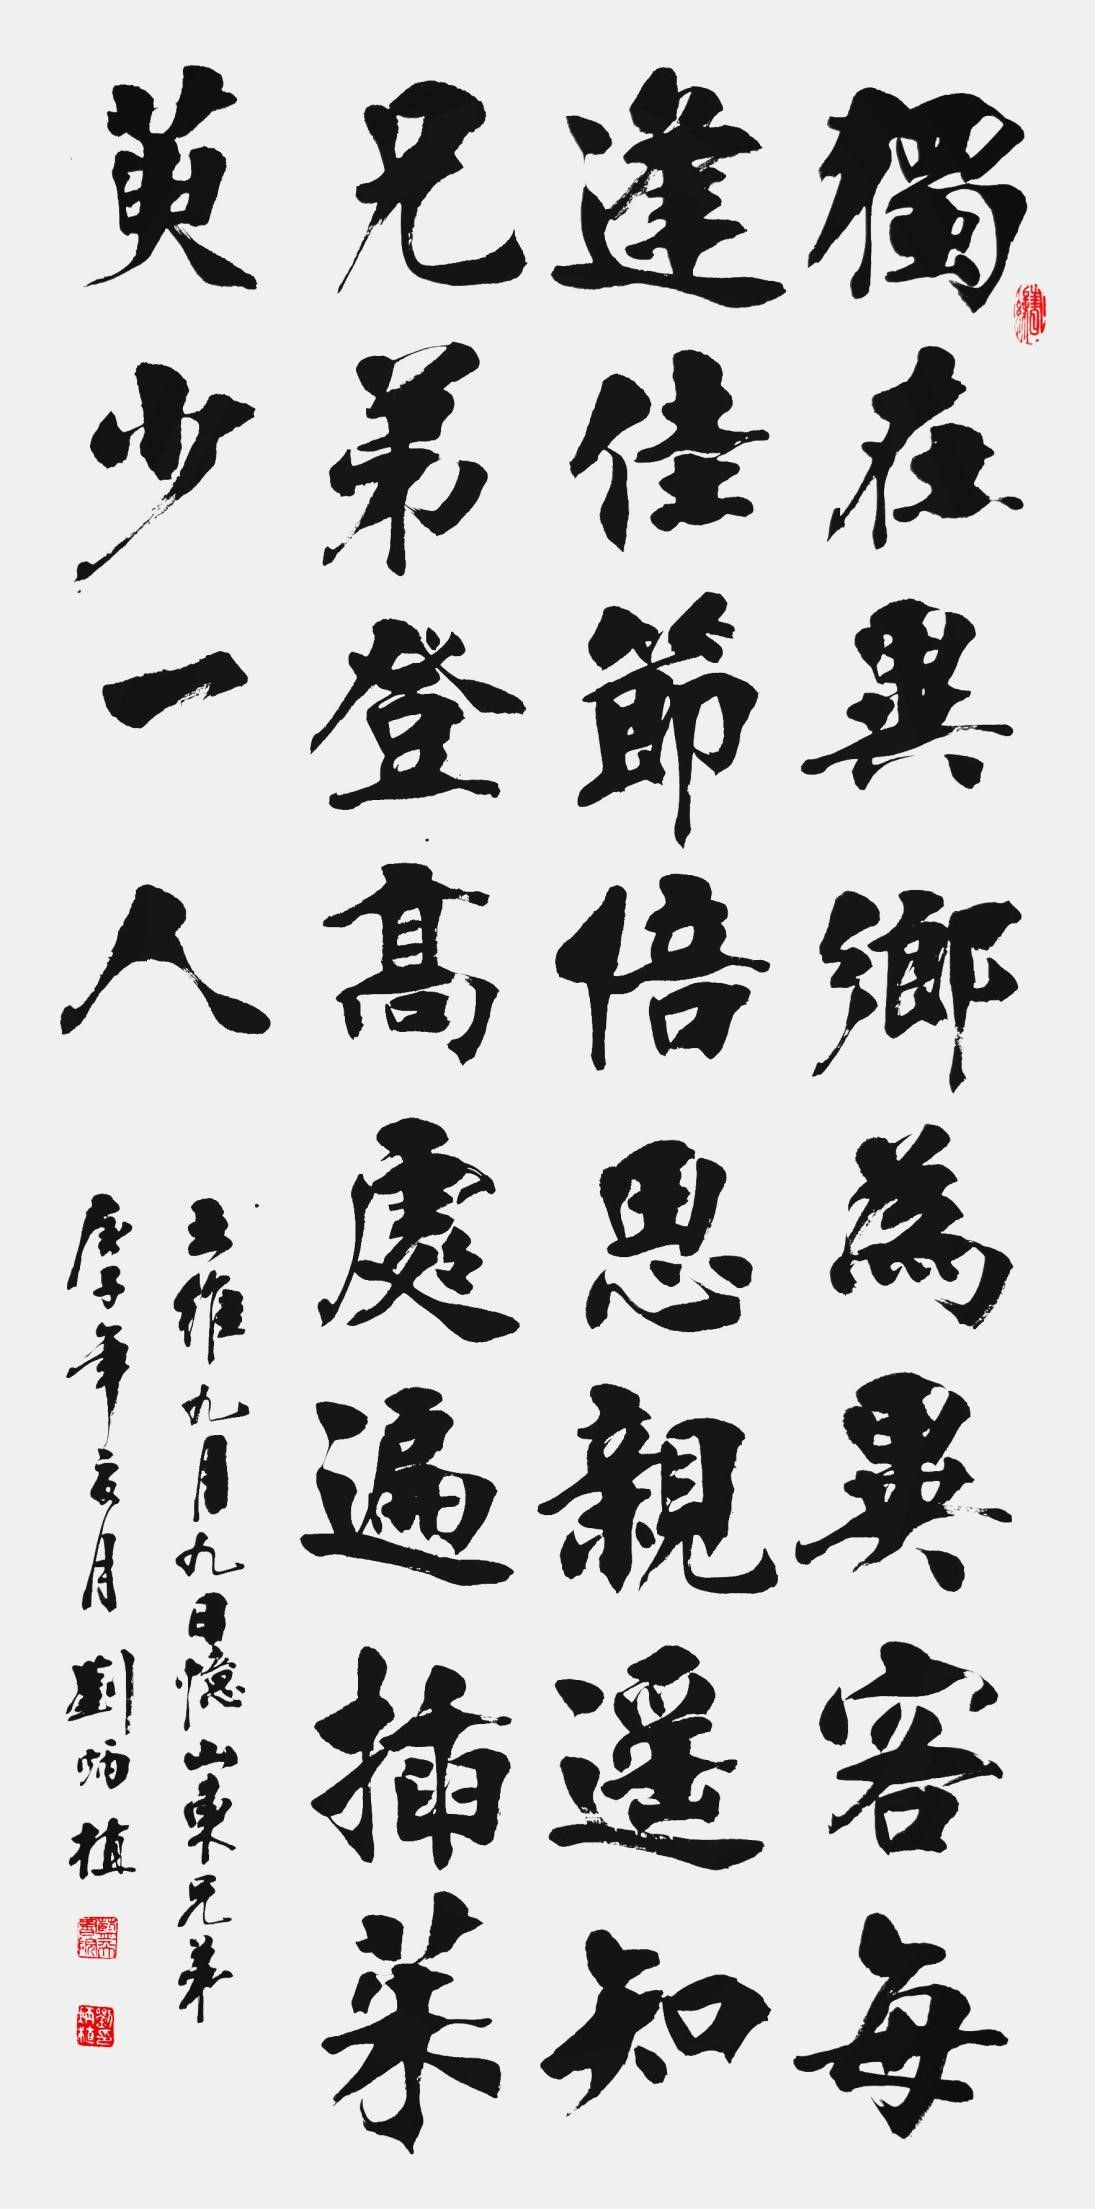 獨在異鄉為異客每
逢佳節倍思親遥知
兄弟登高處遍插茱
萸少一人
王維九月九日憶山東兄弟
庚子年亥月 劉炳植
劉炳植印